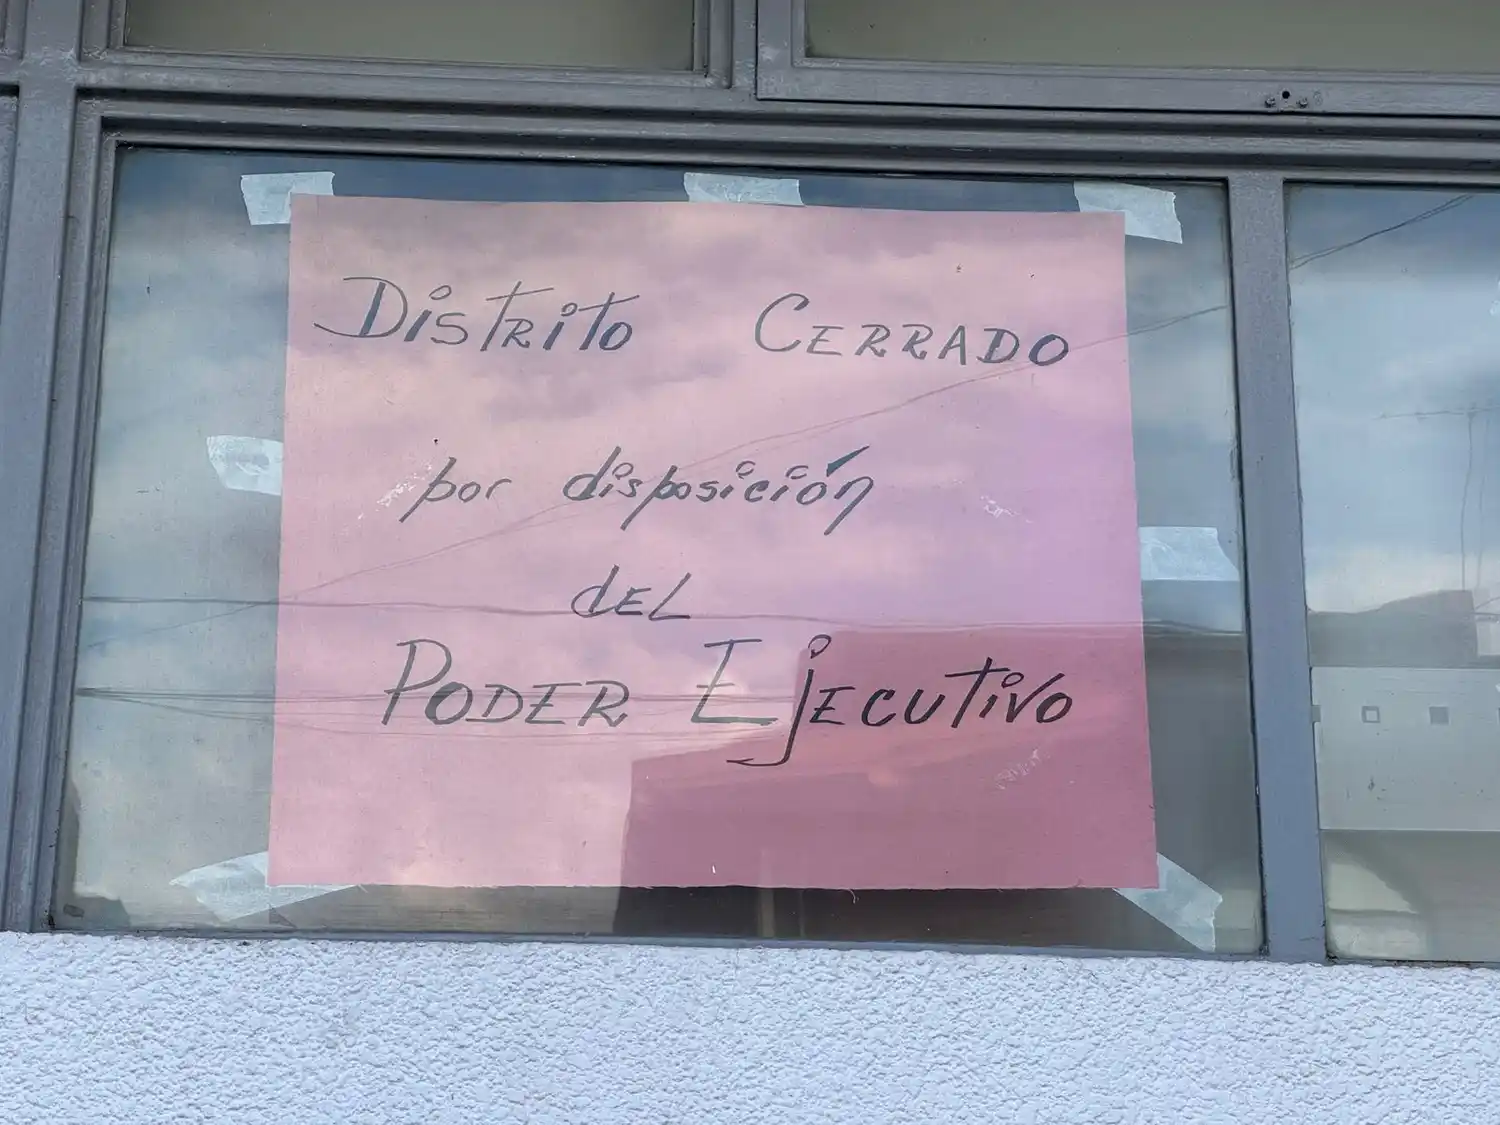 Distrito Cerrado
por disposición
del
Poder Ejecutivo